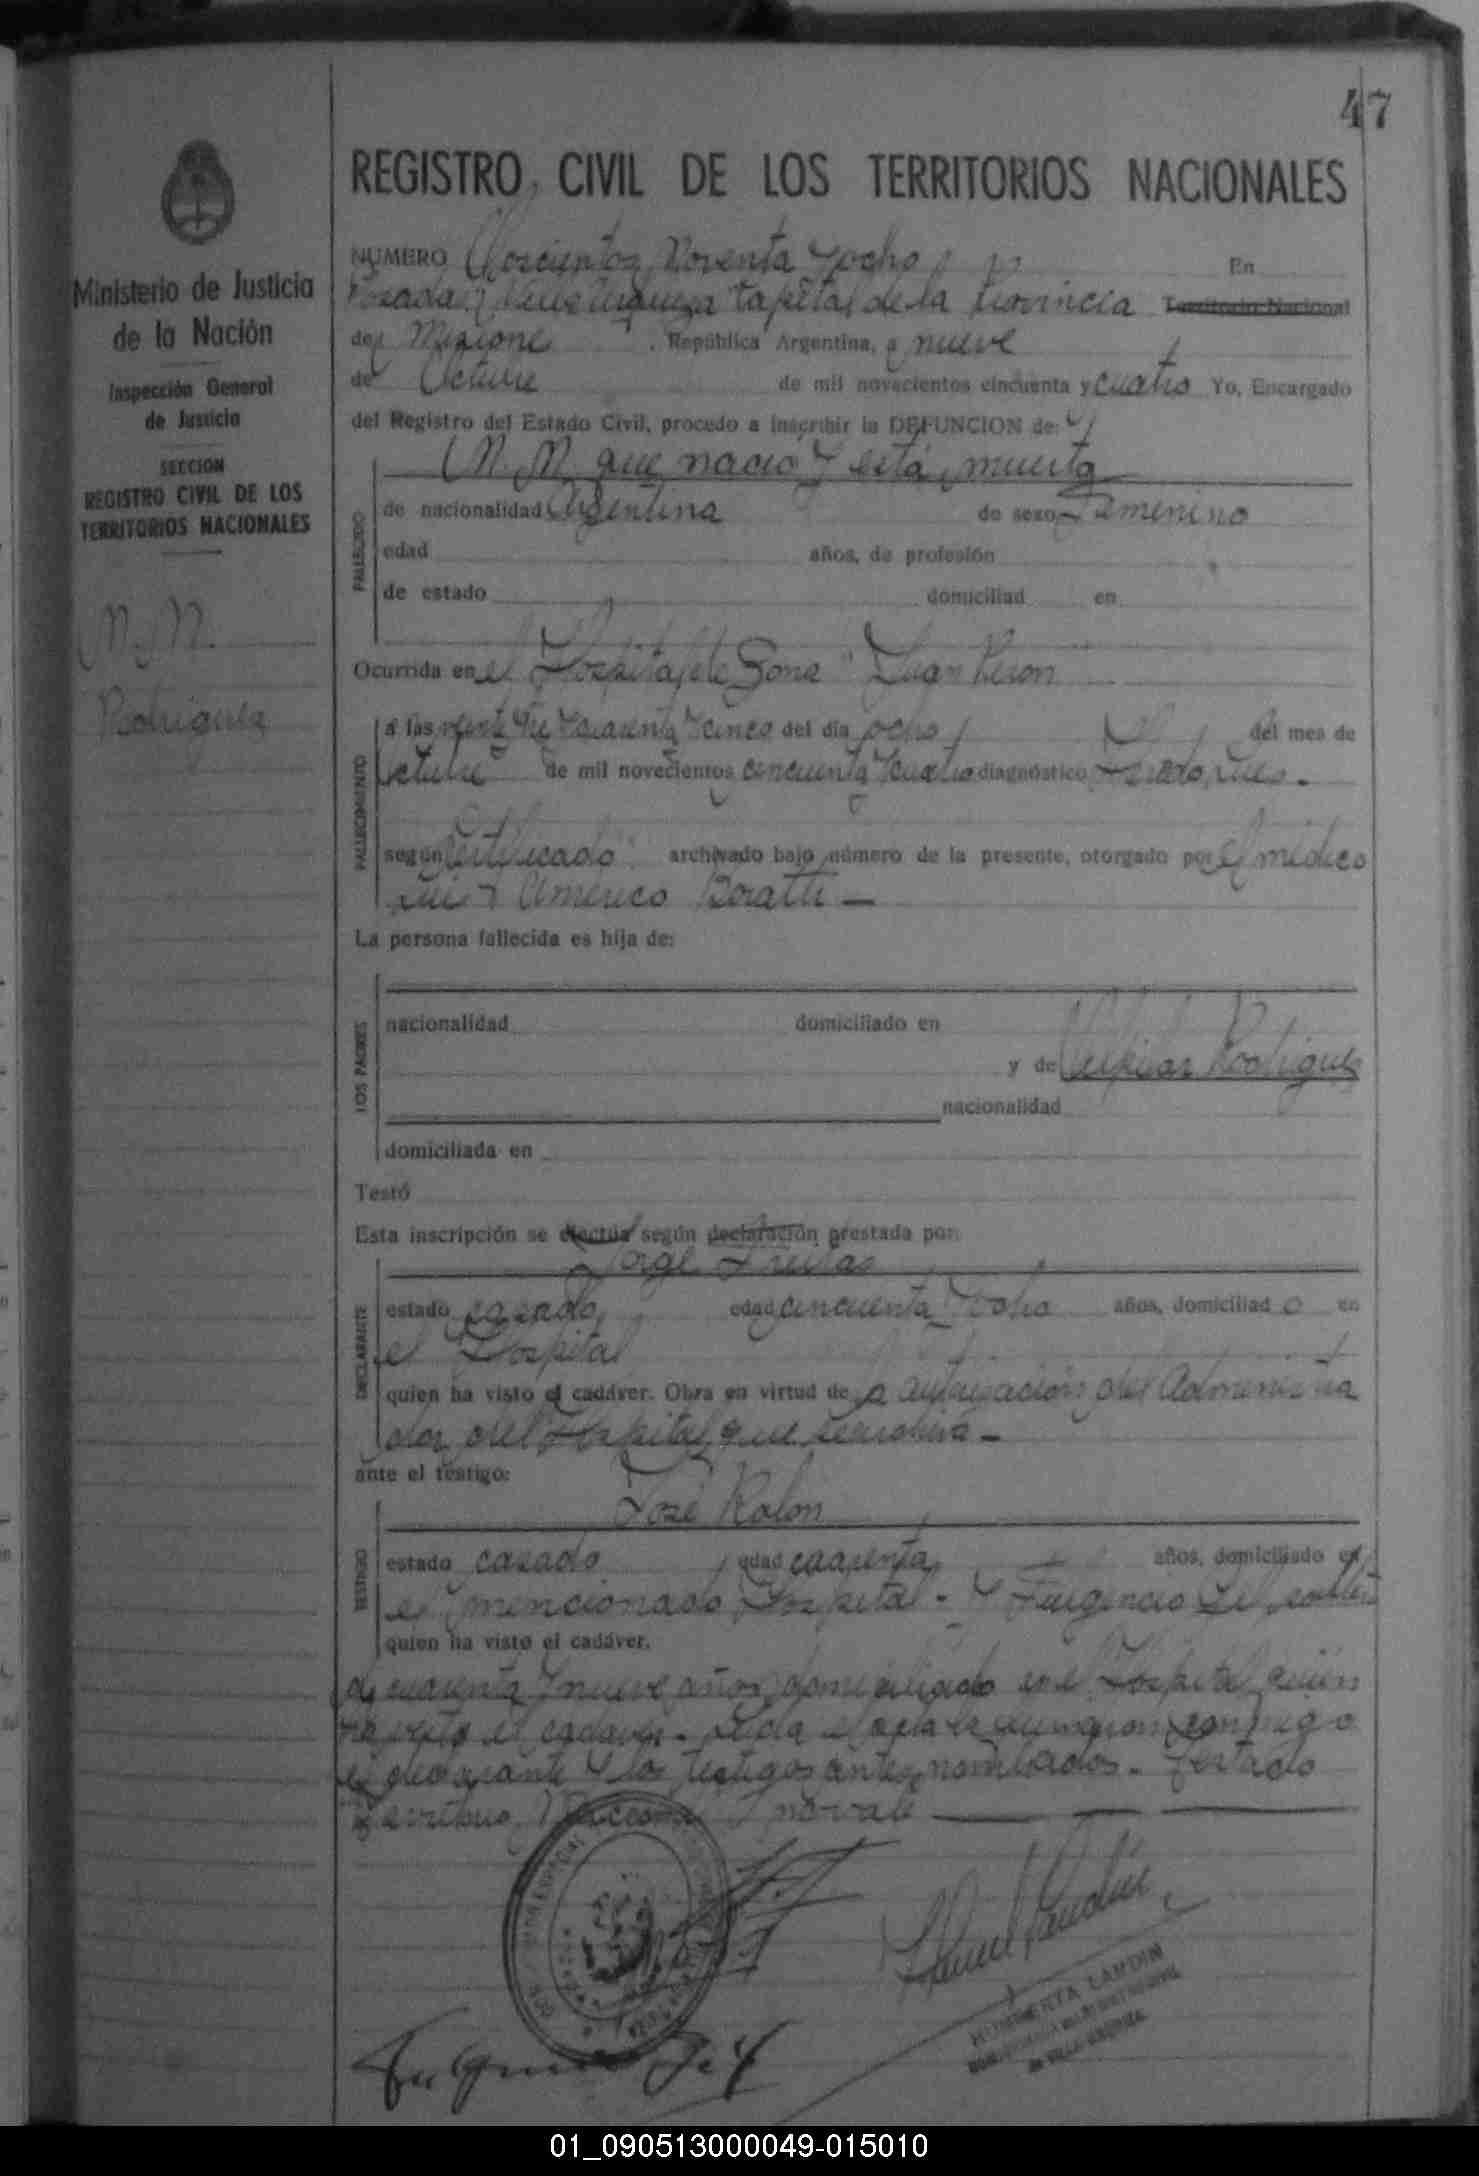 47
REGISTRO CIVIL DE LOS TERRITORIOS NACIONALES
Ministerio de Justicia
de la Nación
Inspección General
de Justicia
SECCION
REGISTRO CIVIL DE LOS
TERRITORIOS NACIONALES
N. N.
Rodriguez
NUMERO Doscientos Noventa y ocho En
Posadas, Villa Urquiza Capital de la Provincia Territorio Nacional
de Misiones . República Argentina, a nueve
de Octubre de mil novecientos cincuenta y cuatro Yo, Encargado
del Registro del Estado Civil, procedo a inscribir la DEFUNCION de:
N. N. que nacio y está muerta
FALLECIDO
de nacionalidad Argentina de sexo Femenino
edad años, de profesión
de estado domiciliad en
Ocurrida en el Hospital de Zona "Juan Peron
FALLECIMIENTO
a las veinte y cuarenta y cinco del día ocho del mes de
Octubre de mil novecientos cincuenta y cuatro diagnóstico
según certificado archivado bajo número de la presente, otorgado por el médico
Luis Americo
La persona fallecida es hija de:
LOS PADRES
nacionalidad domiciliado en
y de Rodriguez
nacionalidad
domiciliada en
Testó
Esta inscripción se efectúa según declaración prestada por:
Jorge Freitas
DECLARANTE
estado casado edad cincuenta y ocho años, domiciliad o en
el Hospital
quien ha visto el cadáver. Obra en virtud de la autorización del Administra
dor del Hospital que se archiva -
ante el testigo:
José Rolon
TESTIGO
estado casado edad cuarenta años, domiciliado en
el mencionado Hospital - y Fulgencio
quien ha visto el cadáver.
de cuarenta y nueve años, domiciliado en el Hospital quien
ha visto el cadaver. Leida el acta la conmigo
el declarante y los testigos antes nombrados. Testado
no vale
HUMBERTA LANDIN
01_090513000049-015010